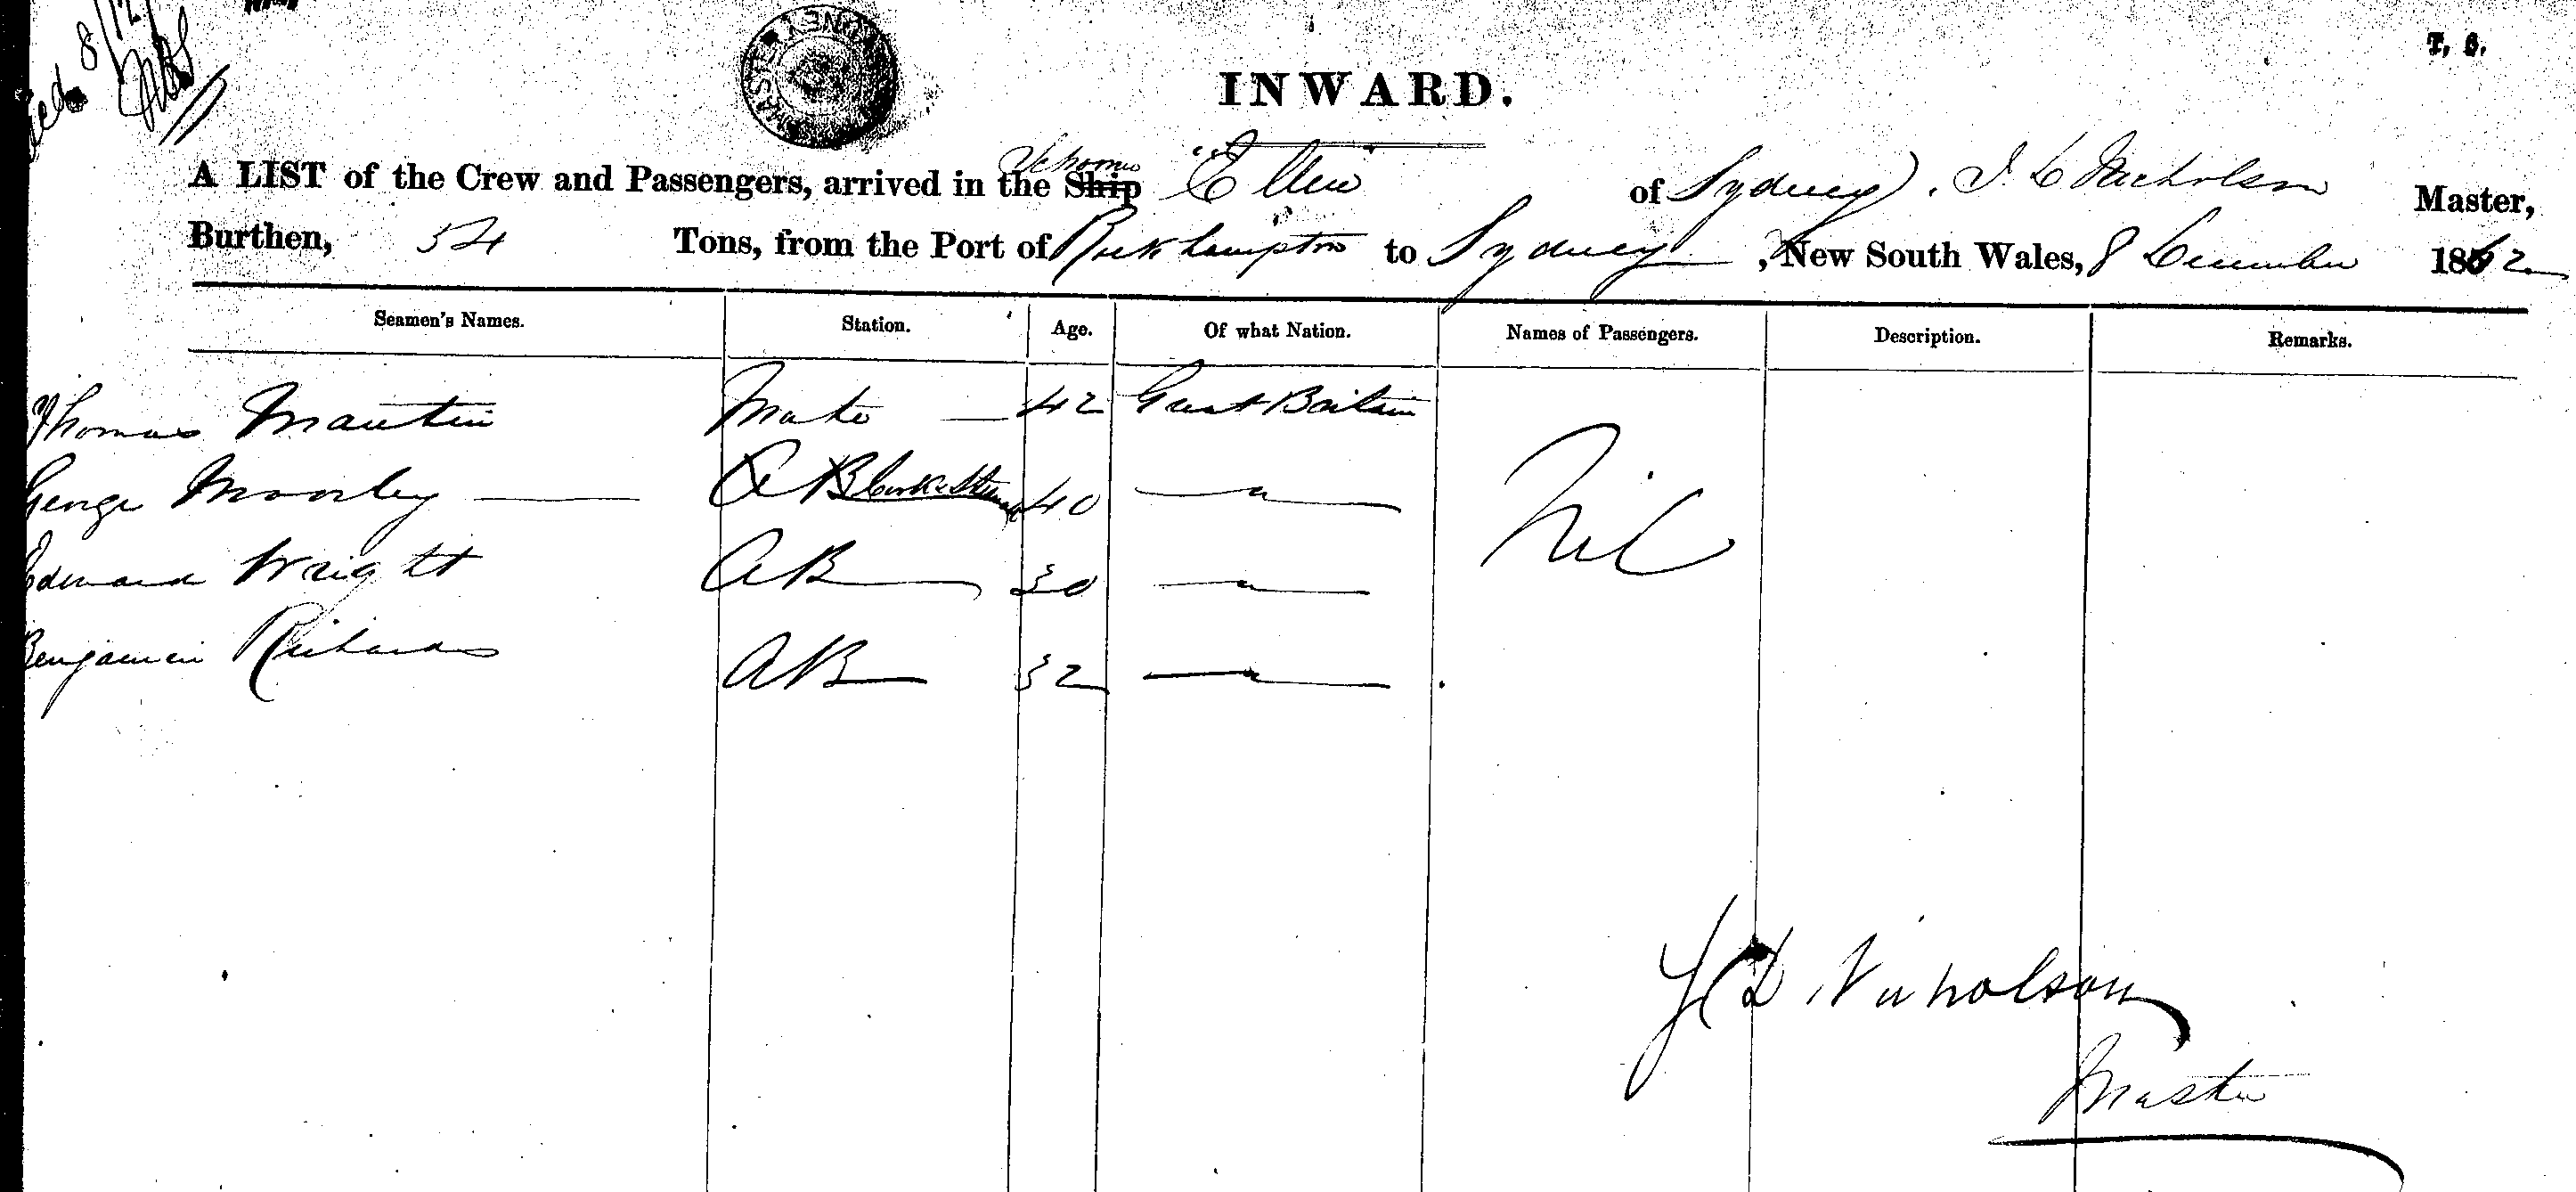 8/12
T. S.
INWARD.
A LIST of the Crew and Passengers, arrived in the Ship Schooner "Ellen" of Sydney, Nicholson Master,
Burthen, 54 Tons, from the Port of Rockhampton to Sydney, New South Wales, 8 December 1862
Seamen's Names. Station. Age. Of what Nation. Names of Passengers. Description. Remarks.
Thomas Mautin Mate 42 Great Britain
George Moorley A B Cook & Steward 40 "
Edward Wright AB 30 "
Nil
Benjamin Richards AB 32 "
Nicholson
Master